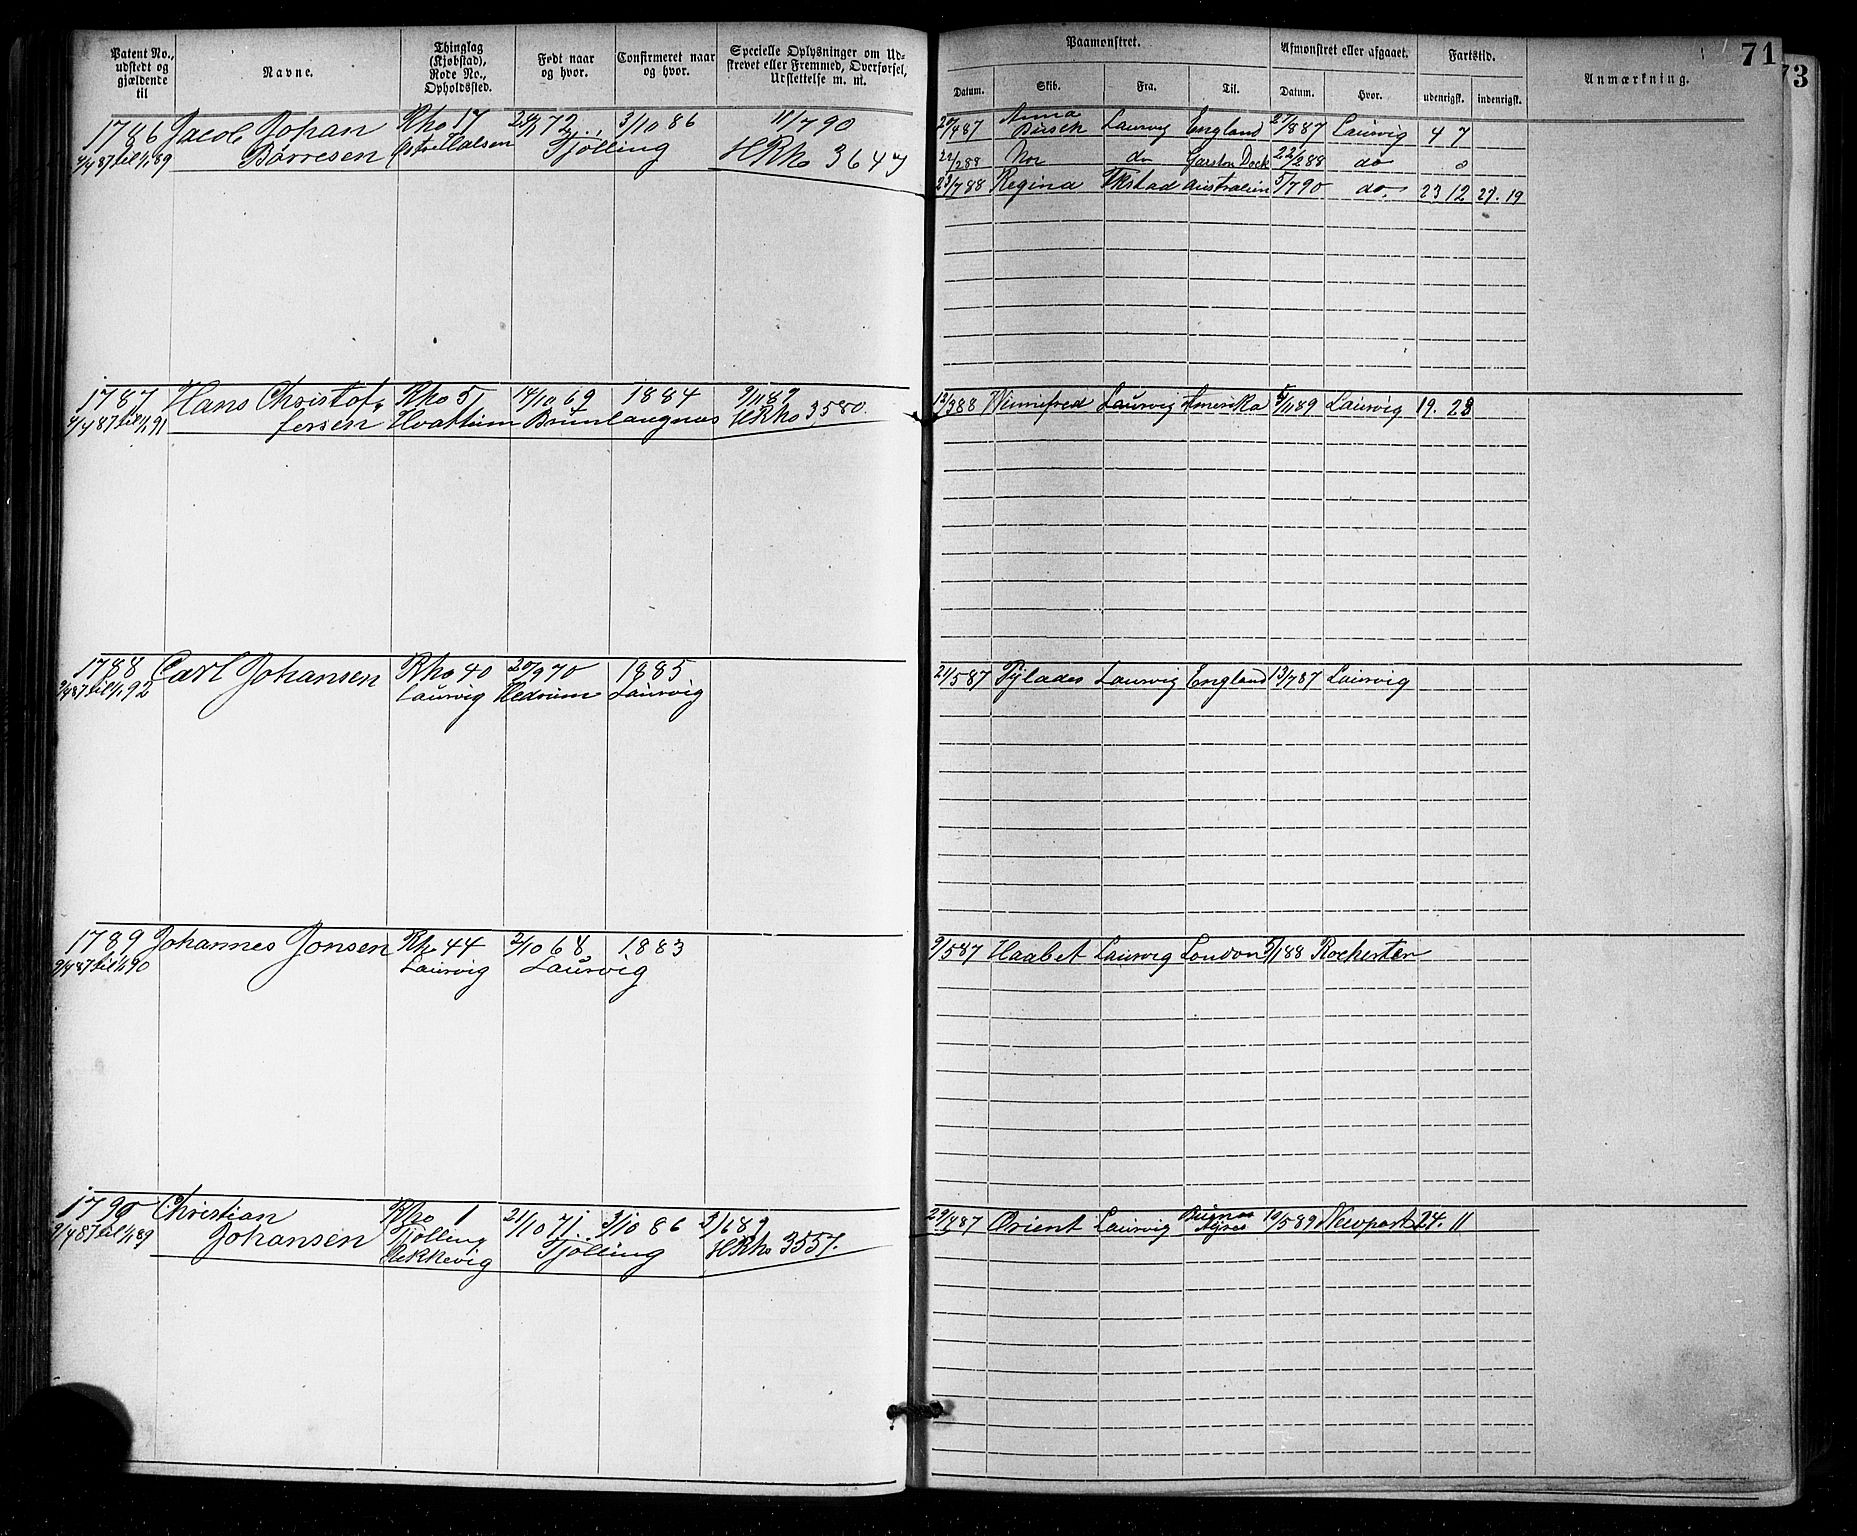 Patent No., udstedt og gjældende til
Navne.
Thinglag (Kjøbstad), Rode No., Opholdssted.
Født naar og hvor.
Confirmeret naar og hvor.
Specielle Oplysninger om Udskrevet eller Fremmed, Overførsel, Udslettelse m. m.
Paamønstret.
Afmønstret eller afgaaet.
Fartstid.
Anmærkning.
71
73
Datum. Skib. Fra. Til. Datum. Hvor. udenrigsk. indenrigsk.
1786 Jacob Johan Rho 17 72 3/10 86 11/7 90
9/4 87 til 1/1 89 Børresen Tjølling HRho 3647
87 Anna Busch Laurvig England 27/8 87 Laurvig 4 7
22/2 88 Nor do Garston Dock 22/2 88 do 0
23/7 88 Regina Fkstad Australien 5/7 90 do 23 12 27. 19
1787 Hans Christof Rho 5 14/10 69 1884 9/11 89
9/4 87 til 1/1 91 fersen Hvattum Brunlangnæs HRho 3580.
12/3 88 Winnifred Laurvig Amerika 5/11 89 Laurvig 19. 23
1788 Carl Johansen Rho 40 20/9 70 1885
9/4 87 til 1/1 92 Laurvig Hedrum Laurvig
21/5 87 Pylades Laurvig England 13/7 87 Laurvig
1789 Johannes Jonsen Rho 44 2/10 68 1883
9/4 87 til 1/1 90 Laurvig Laurvig
9/5 87 Haabet Laurvig London 5/1 88 Rochester
1790 Christian Rho 1 21/10 71 3/10 86 3/6 89
9/4 87 til 1/1 89 Johansen Tjølling Tjølling HRho 3557.
Rekkevig
29/7 87 Orient Laurvig Buenos Ayres 10/5 89 Newport 24. 11